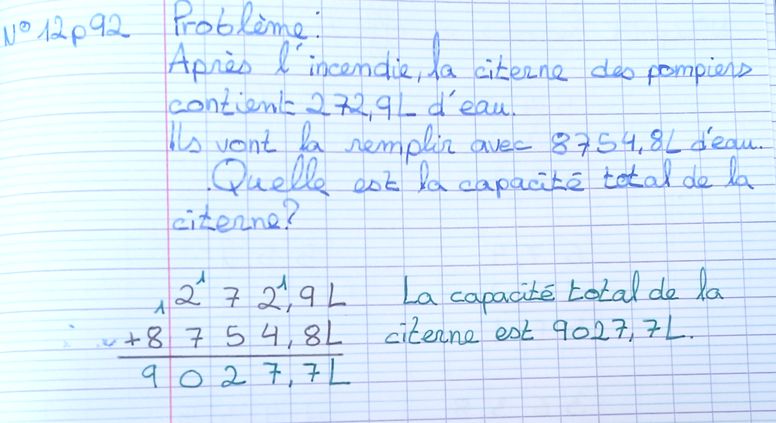 N° 12p92 Problème:
Après l'incendie, la citerne des pompiers
contient 272,9L d'eau.
Ils vont la remplir avec 8754,8L d'eau.
Quelle est la capacité total de la
citerne?
1 2 1 7 2 1 , 9 L La capacité total de la
+ 8 7 5 4 , 8 L citerne est 9027,7L.
9 0 2 7 , 7 L